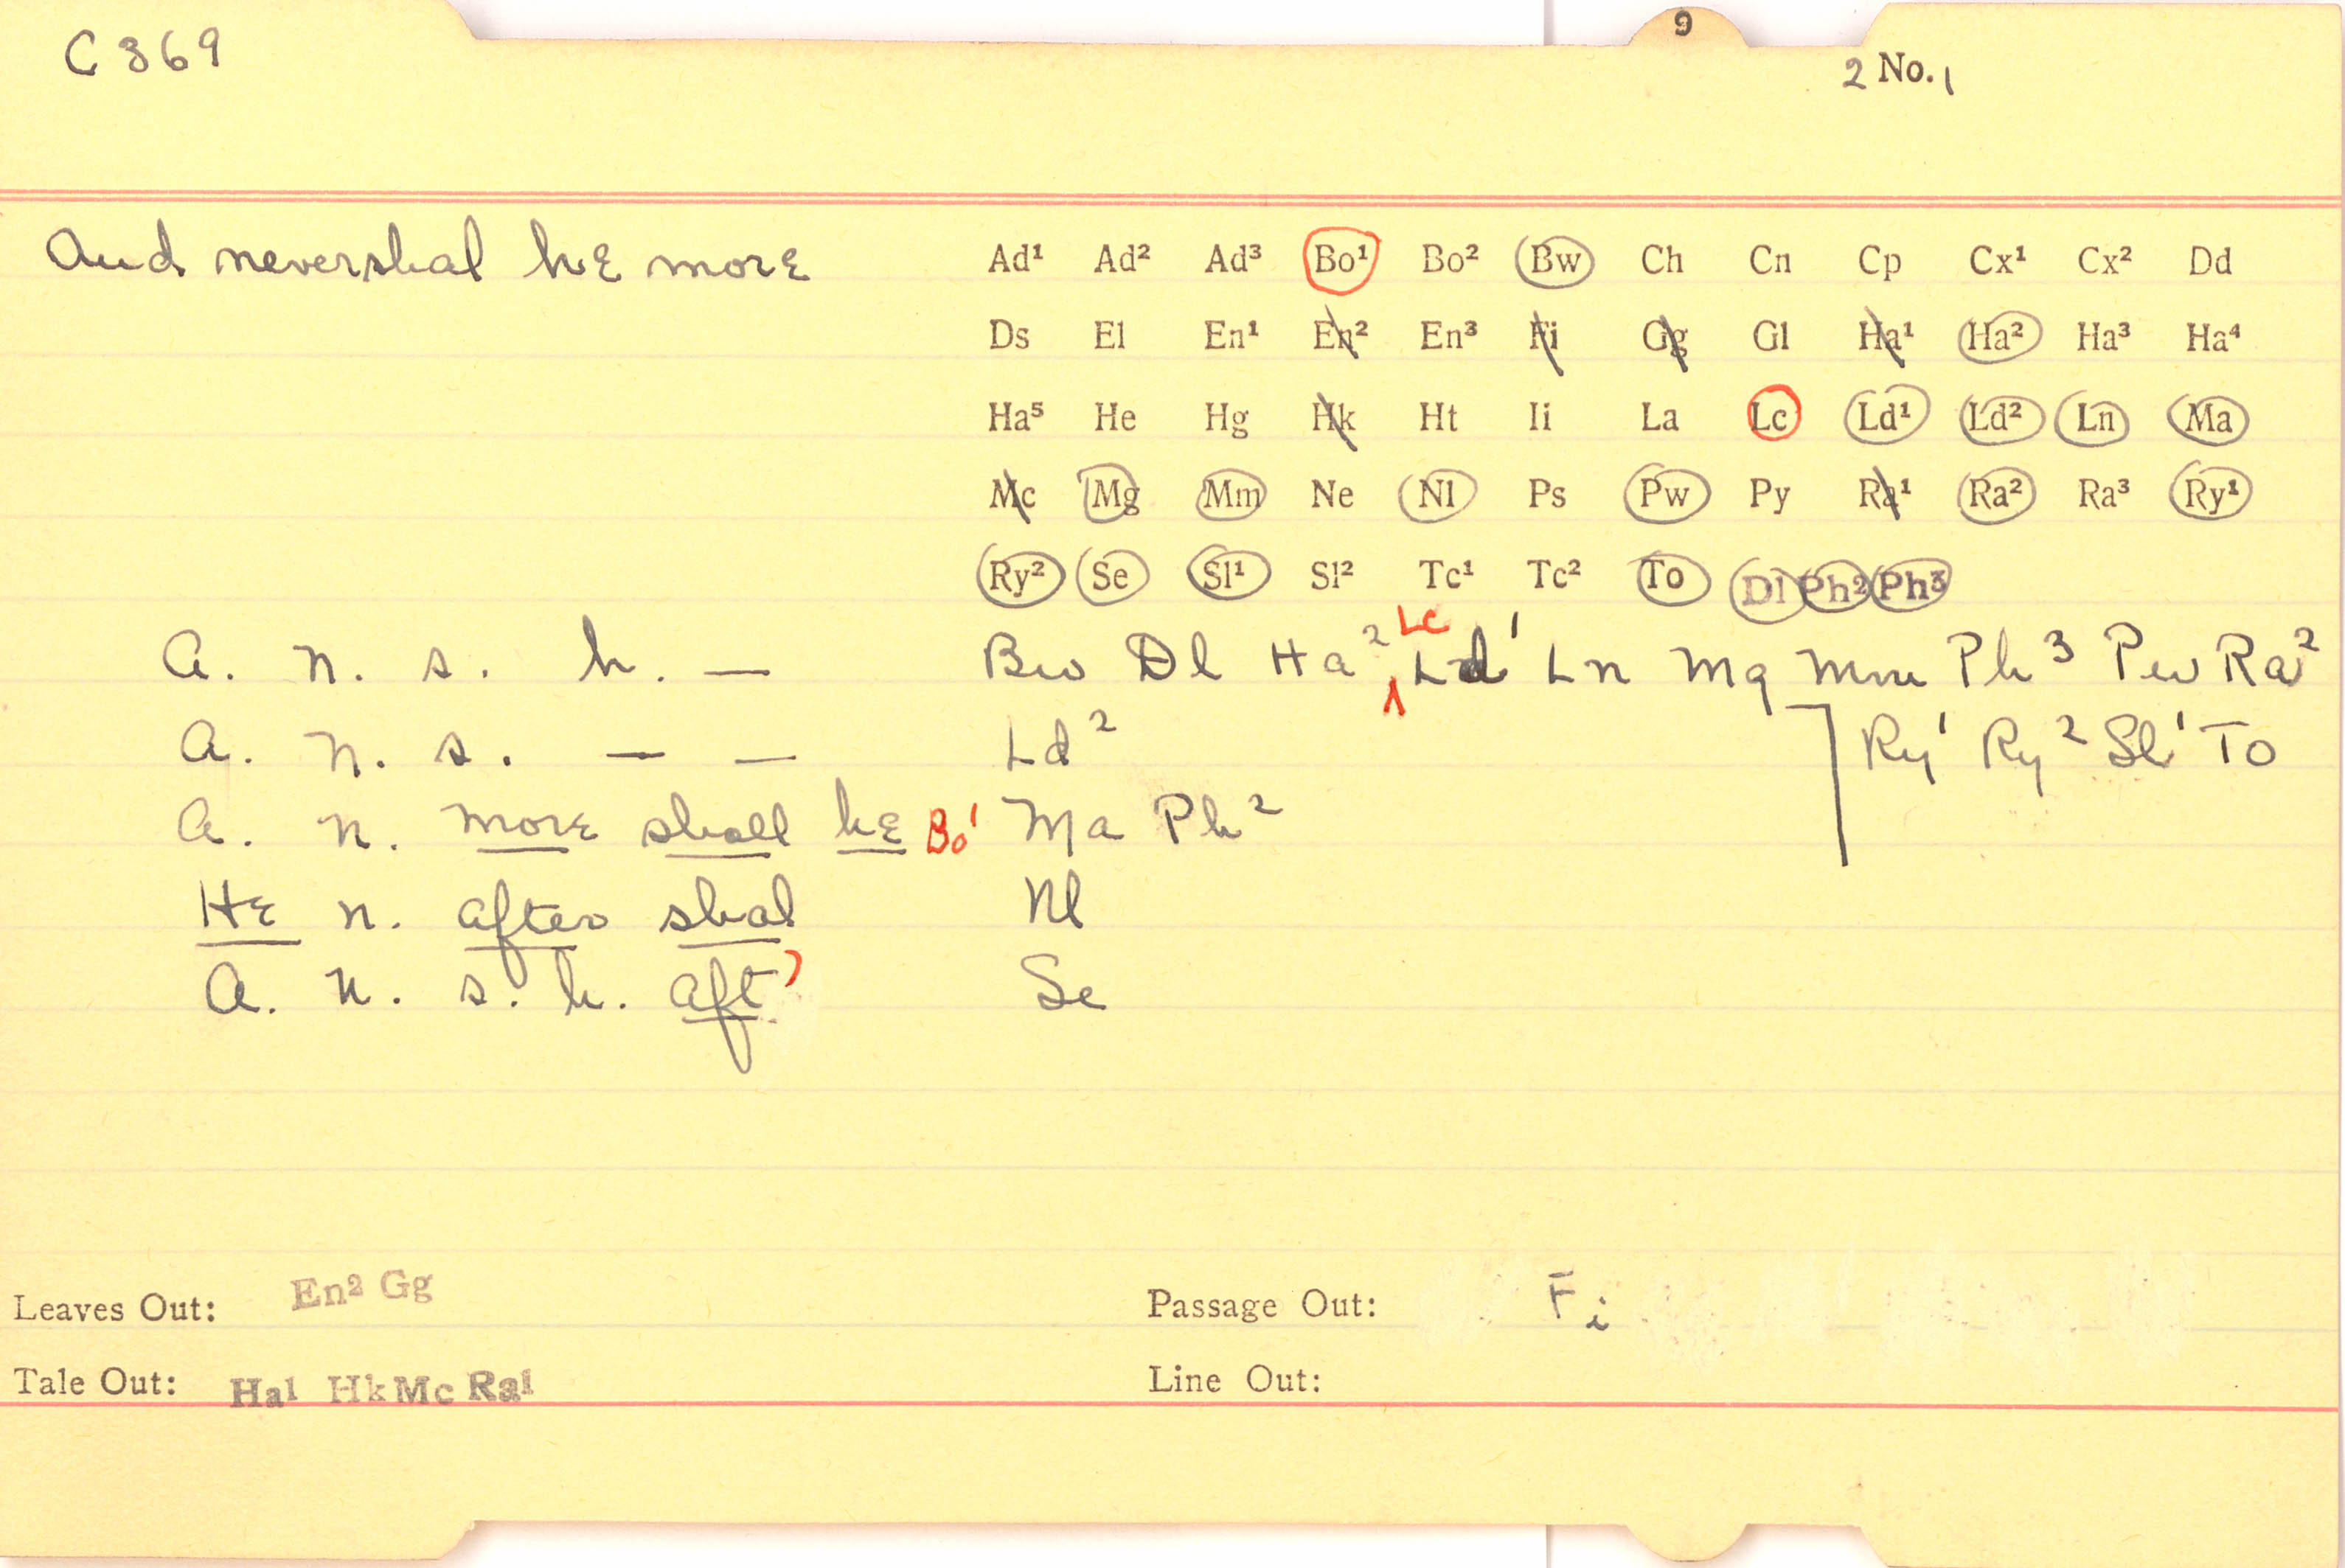 C 369
9
2 No. 1
And nevershal he more
Ad¹ Ad² Ad³ Bo¹ Bo² Bw Ch Cn Cp Cx¹ Cx² Dd
Ds El En¹ En² En³ Fi Gg Gl Ha¹ Ha² Ha³ Ha⁴
Ha⁵ He Hg Hk Ht Ii La Lc Ld¹ Ld² Ln Ma
Mc Mg Mm Ne Nl Ps Pw Py Ra¹ Ra² Ra³ Ry¹
Ry² Se Sl¹ Sl² Tc¹ Tc² To Dl Ph2 Ph3
A. n. s. h. — Bw Dl Ha² Lc Ld¹ Ln Mg Mm Ph³ Pw Ra²
A. n. s. — — Ld² ] Ry¹ Ry² Sl¹ To
A. n. more shall he Bo¹ Ma Ph²
He n. after shal Nl
A. n. s. h. aft' Se
Leaves Out: En² Gg Passage Out: Fi
Tale Out: Ha1 Hk Mc Ra1 Line Out: